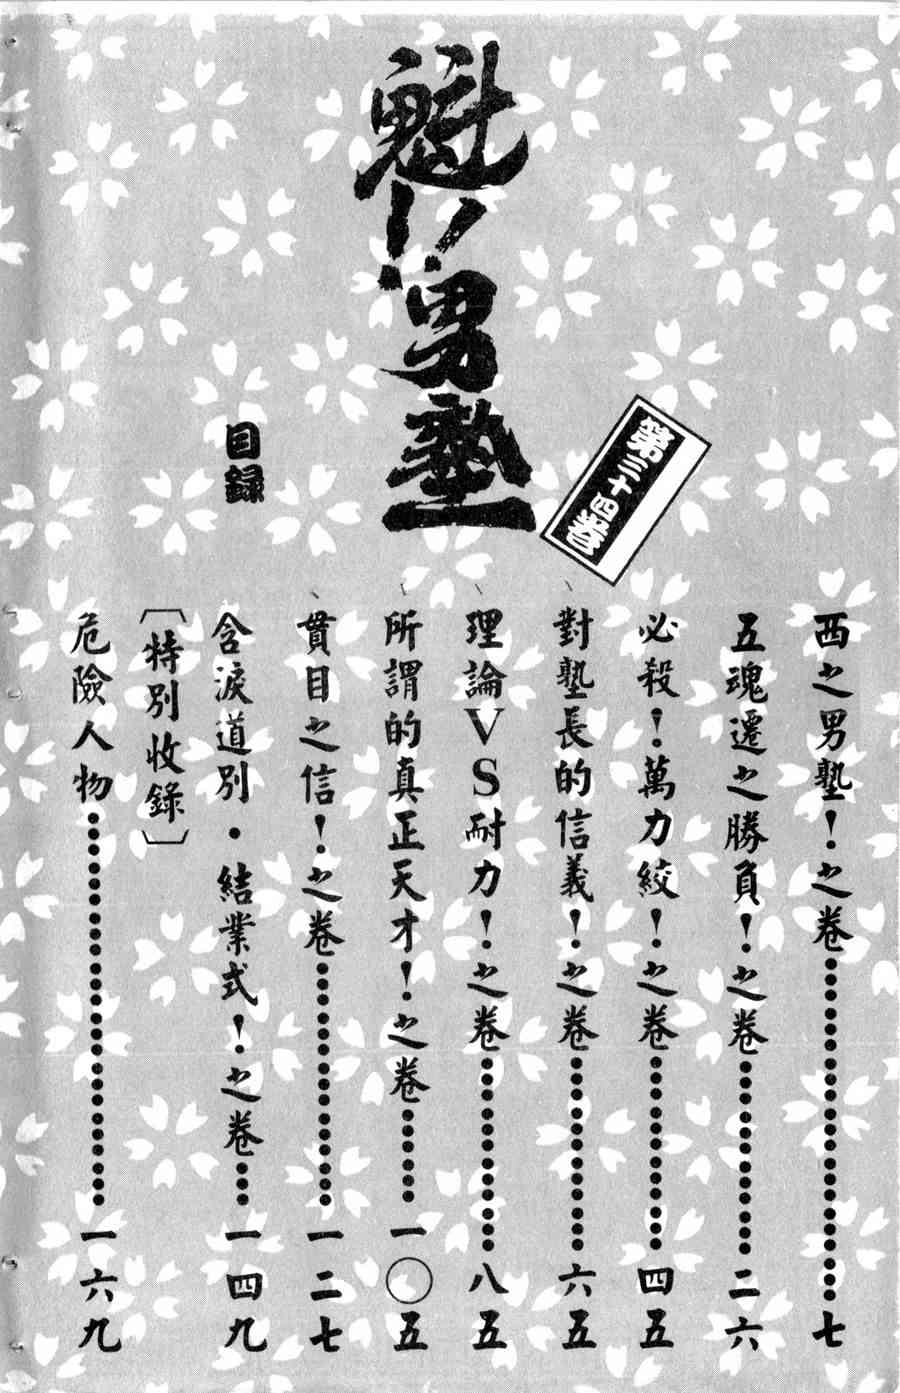 魁!!男塾
第三十四卷
目錄
西之男塾!之卷……七
五魂遷之勝負!之卷……二六
必殺!萬力絞!之卷……四五
對塾長的信義!之卷……六五
理論VS耐力!之卷……八五
所謂的真正天才!之卷……一〇五
貫目之信!之卷……一二七
含淚道別・結業式!之卷……一四九
〔特別收錄〕
危險人物……一六九